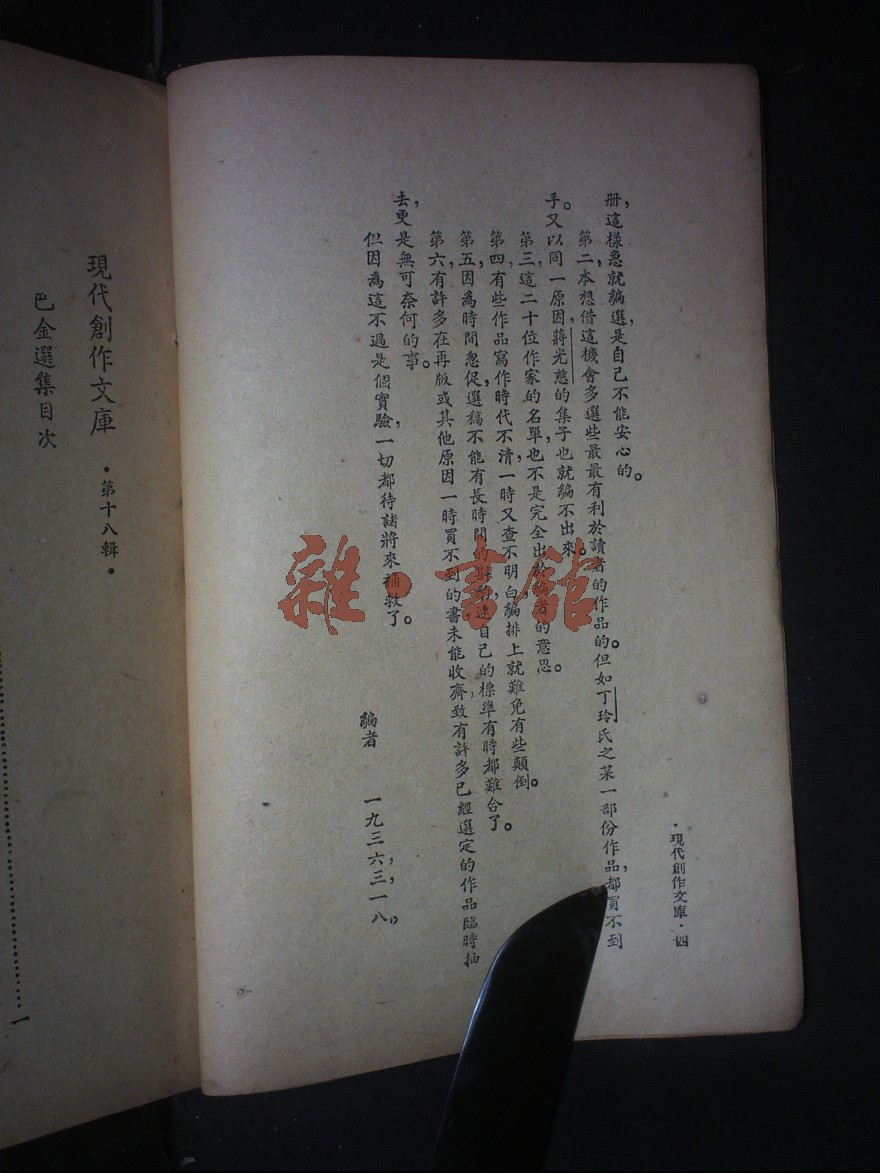 ·現代創作文庫·四
册，這樣急就編選，是自己不能安心的。
第二，本想借這機會多選些最最有利於讀者的作品的。但如丁玲氏之某一部份作品，都買不到
手。又以同一原因，蔣光慈的集子也就編不出來。
第三，這二十位作家的名單，也不是完全出於編者的意思。
第四，有些作品寫作時代不清，一時又查不明白，編排上就難免有些顛倒。
第五，因爲時間怱促，選稿不能有長時間的，連自己的標準有時都難合了。
第六，有許多在再版或其他原因一時買不到的書，未能收齊，致有許多已經選定的作品臨時抽
去，更是無可奈何的事。
但因爲這不過是個實驗，一切都待諸將來補救了。
編者 一九三六，三，一八。
現代創作文庫
·第十八輯·
巴金選集目次
一
雜·書館